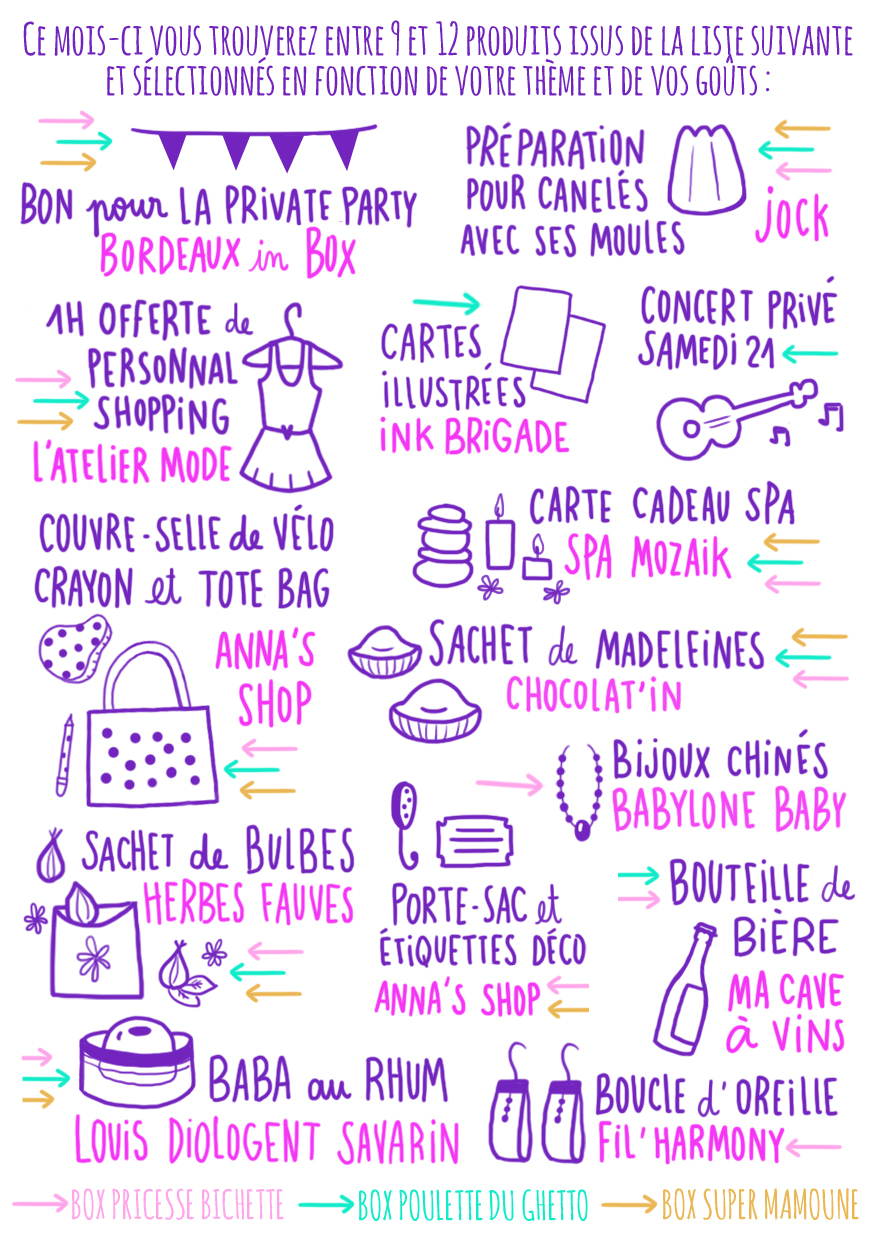 Ce mois-ci vous trouverez entre 9 et 12 produits issus de la liste suivante
et sélectionnés en fonction de votre thème et de vos goûts :
BON pour LA PRiVATE PARTY
BORDEAUX in BOX
PRÉPARATiON
POUR CANELÉS
AVEC SES MOULES
JOCK
1H OFFERTE de
PERSONNAL
SHOPPiNG
L'ATELiER MODE
CARTES
iLLUSTRÉES
iNK BRiGADE
CONCERT PRiVÉ
SAMEDi 21
COUVRE-SELLE de VÉLO
CRAYON et TOTE BAG
ANNA'S
SHOP
CARTE CADEAU SPA
SPA MOZAiK
SACHET de MADELEiNES
CHOCOLAT'iN
BiJOUX CHiNÉS
BABYLONE BABY
SACHET de BULBES
HERBES FAUVES
PORTE-SAC et
ÉTiQUETTES DÉCO
ANNA'S SHOP
BOUTEiLLE de
BiÈRE
MA CAVE
à ViNS
BABA au RHUM
LOUiS DiOLOGENT SAVARiN
BOUCLE d'OREiLLE
FiL'HARMONY
BOX PRICESSE BICHETTE
BOX POULETTE DU GHETTO
BOX SUPER MAMOUNE